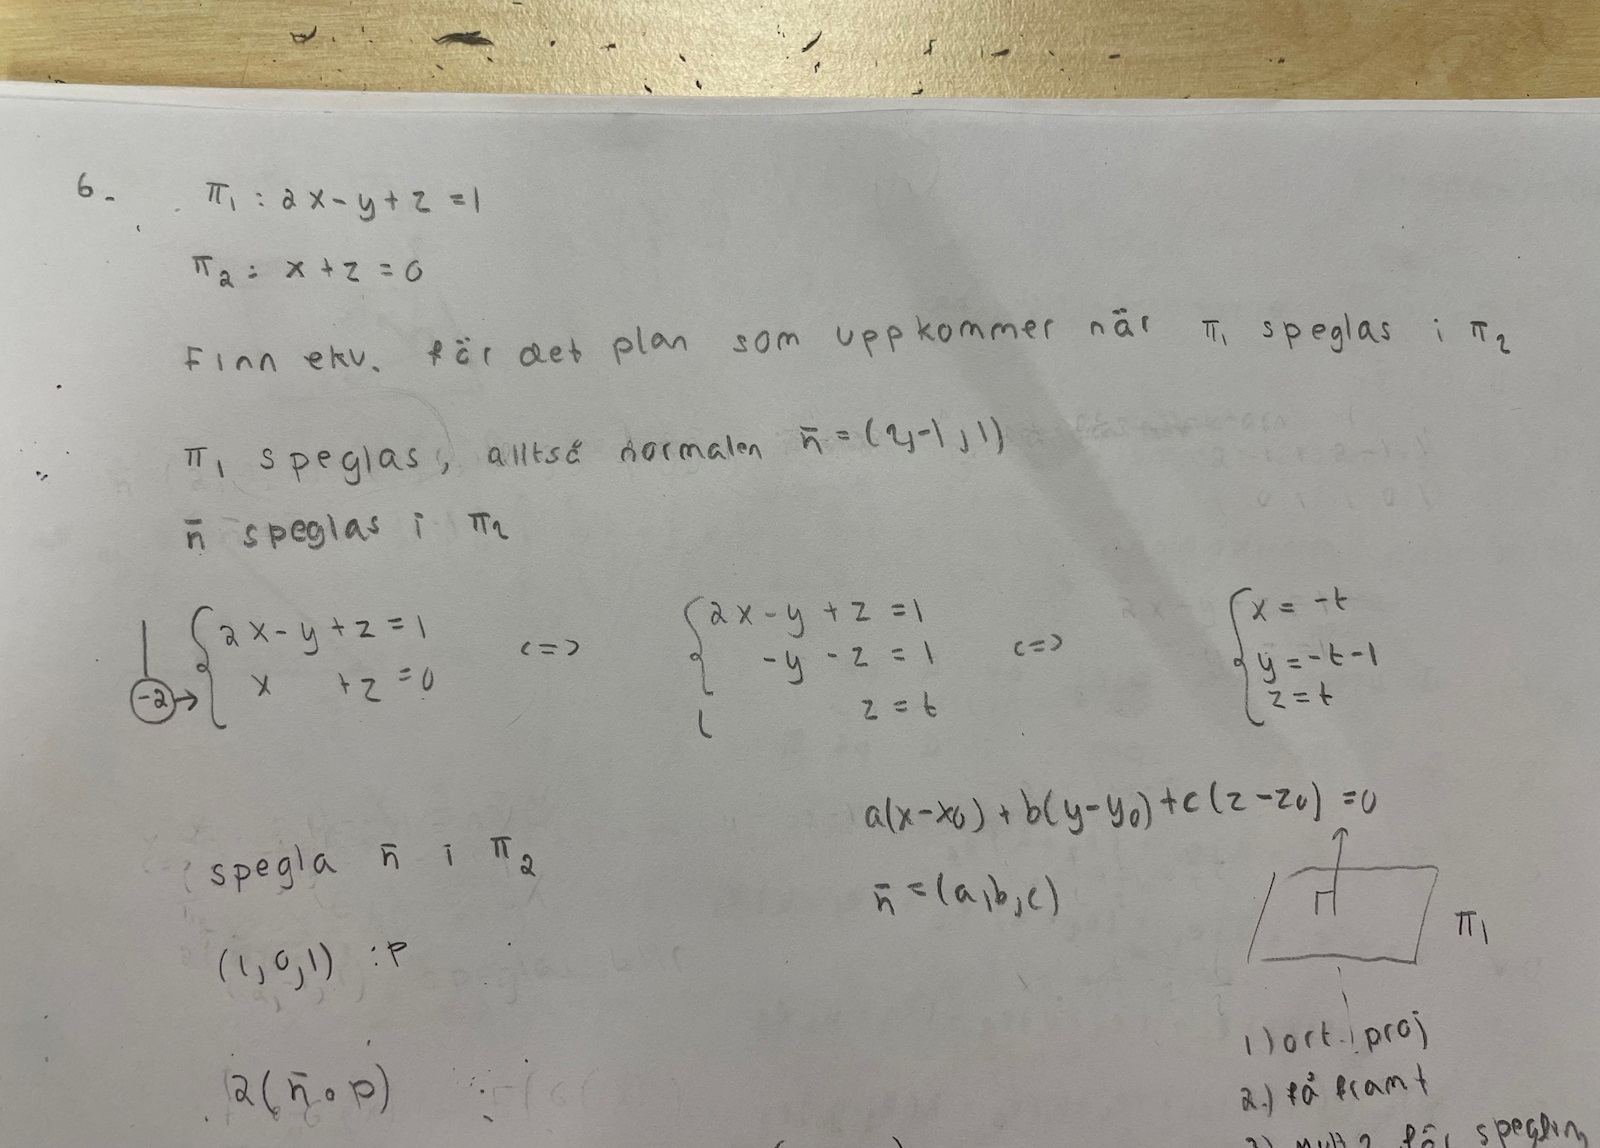 6. π₁: 2x-y+z=1
π₂: x+z=0
Finn ekv. för det plan som uppkommer när π₁ speglas i π₂
π₁ speglas, alltså normalen n̄=(2,-1,1)
n̄ speglas i π₂
{2x-y+z=1 <=> {2x-y+z=1 <=> {x=-t
-2 → x +z=0 -y-z=1 y=-t-1
z=t z=t
a(x-x₀)+b(y-y₀)+c(z-z₀)=0
spegla n̄ i π₂
n̄=(a,b,c)
π₁
(1,0,1) :P
1) ort. proj
2(n̄∘P)
2.) få fram t
för speglin